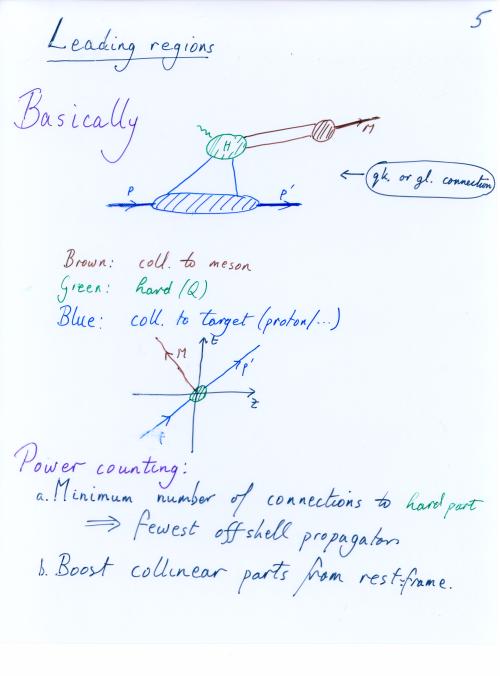 5
Leading regions
Basically
H
M
P
P'
qk or gl. connection
Brown: coll. to meson
Green: hard (Q)
Blue: coll. to target (proton/...)
t
M
P'
Z
P
Power counting:
a. Minimum number of connections to hard part
⇒ fewest offshell propagators
b. Boost collinear parts from rest-frame.